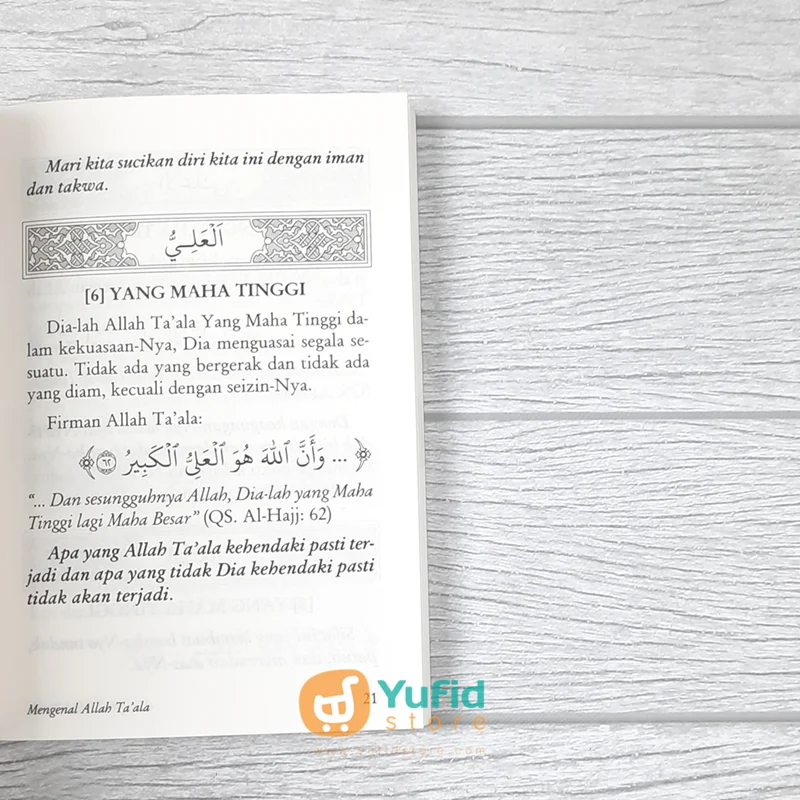 Mari kita sucikan diri kita ini dengan iman
dan takwa.
اَلْعَلِيُّ
[6] YANG MAHA TINGGI
Dia-lah Allah Ta’ala Yang Maha Tinggi da-
lam kekuasaan-Nya, Dia menguasai segala se-
suatu. Tidak ada yang bergerak dan tidak ada
yang diam, kecuali dengan seizin-Nya.
Firman Allah Ta’ala:
﴿ ... وَأَنَّ ٱللَّهَ هُوَ ٱلْعَلِيُّ ٱلْكَبِيرُ ٦٢ ﴾
“... Dan sesungguhnya Allah, Dia-lah yang Maha
Tinggi lagi Maha Besar” (QS. Al-Hajj: 62)
Apa yang Allah Ta’ala kehendaki pasti ter-
jadi dan apa yang tidak Dia kehendaki pasti
tidak akan terjadi.
Mengenal Allah Ta’ala
21
Yufid
store
www.yufidstore.com